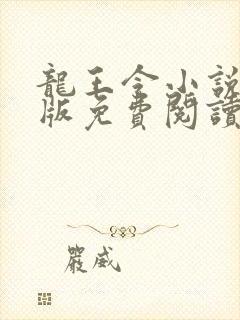 龍王令小說
版免費閱讀
嚴威